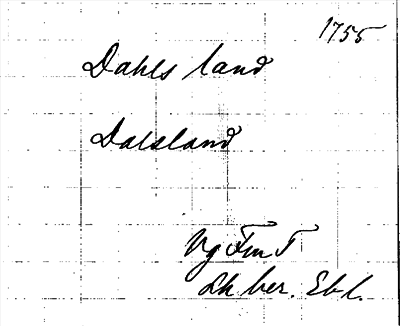 1755
Dahls land
Dalsland
Vg Fm T
Lh ber. Ebl.